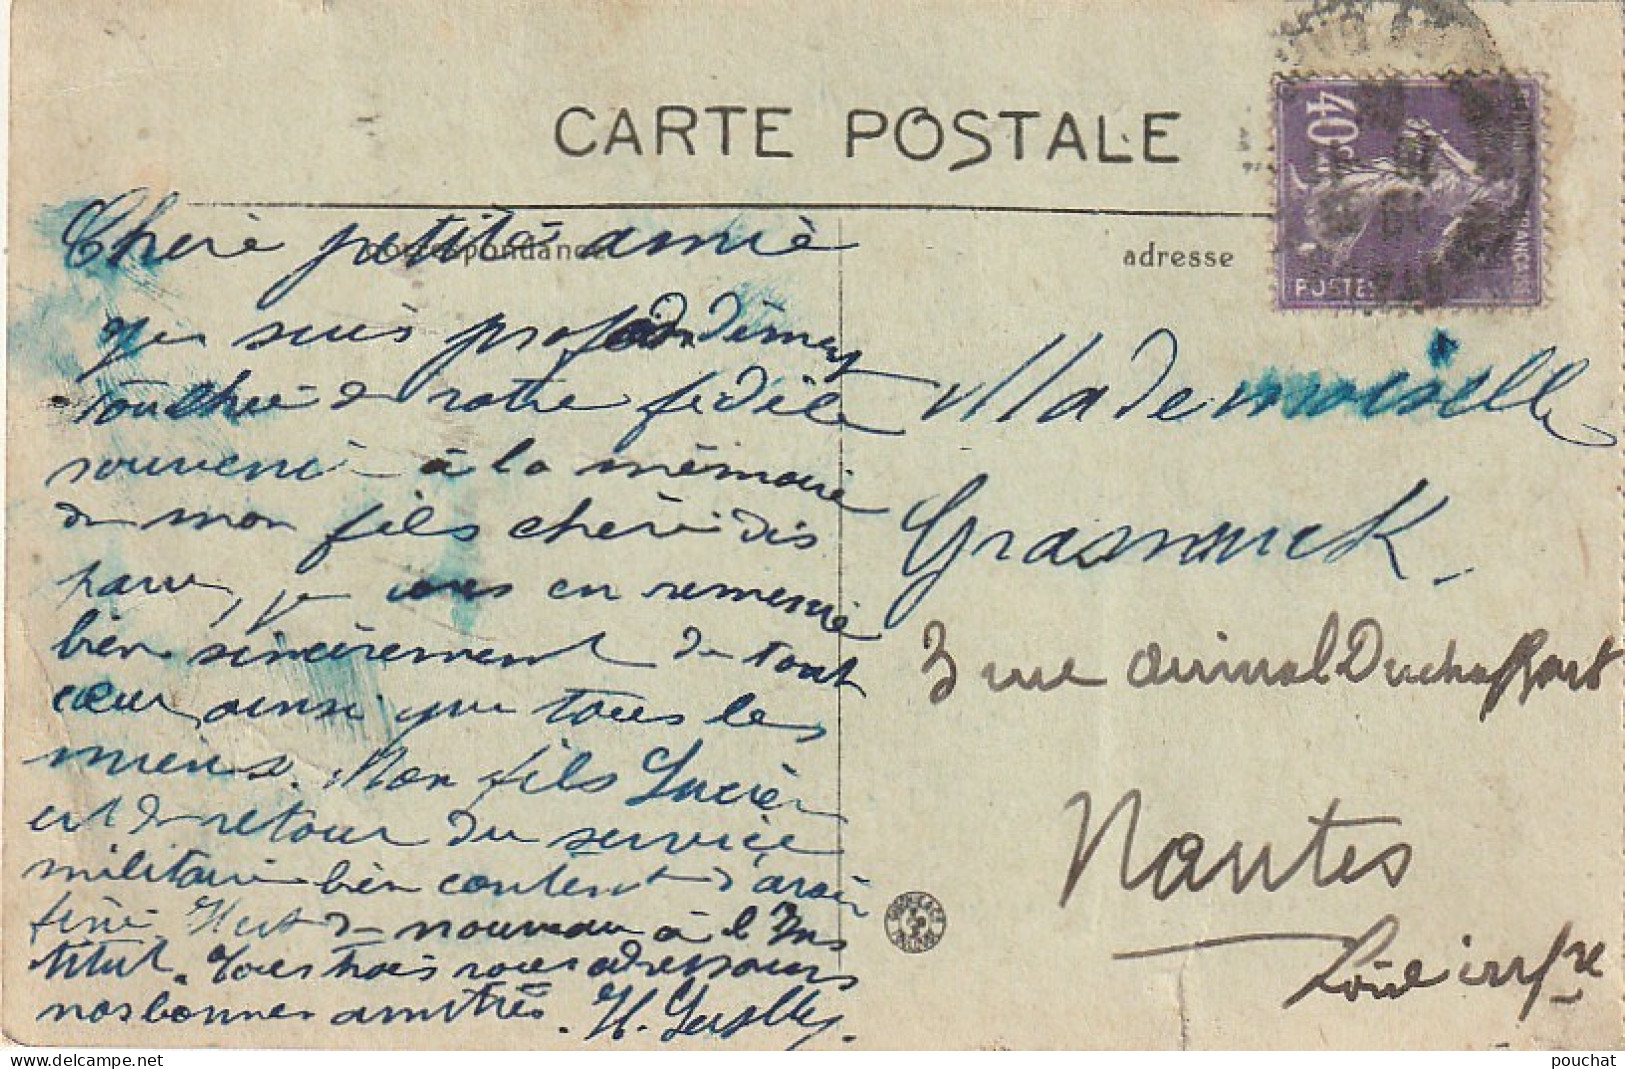 CARTE POSTALE
correspondance
adresse
40c
POSTES
FRANCAISE
Chère petite amie
je suis profondément
touchée de votre fidèle
souvenir à la mémoire
de mon fils chéri dis
paru, je vous en remercie
bien sincèrement de tout
cœur, ainsi que tous les
miens. Mon fils Lucien
est de retour du service
militaire bien content d'avoir
fini. Il est de nouveau à l'Ins
titut. Tous trois vous adressons
nos bonnes amitiés. H.
Mademoiselle
3 rue Amiral Duchaffault
Nantes
Loire infre
pouchat